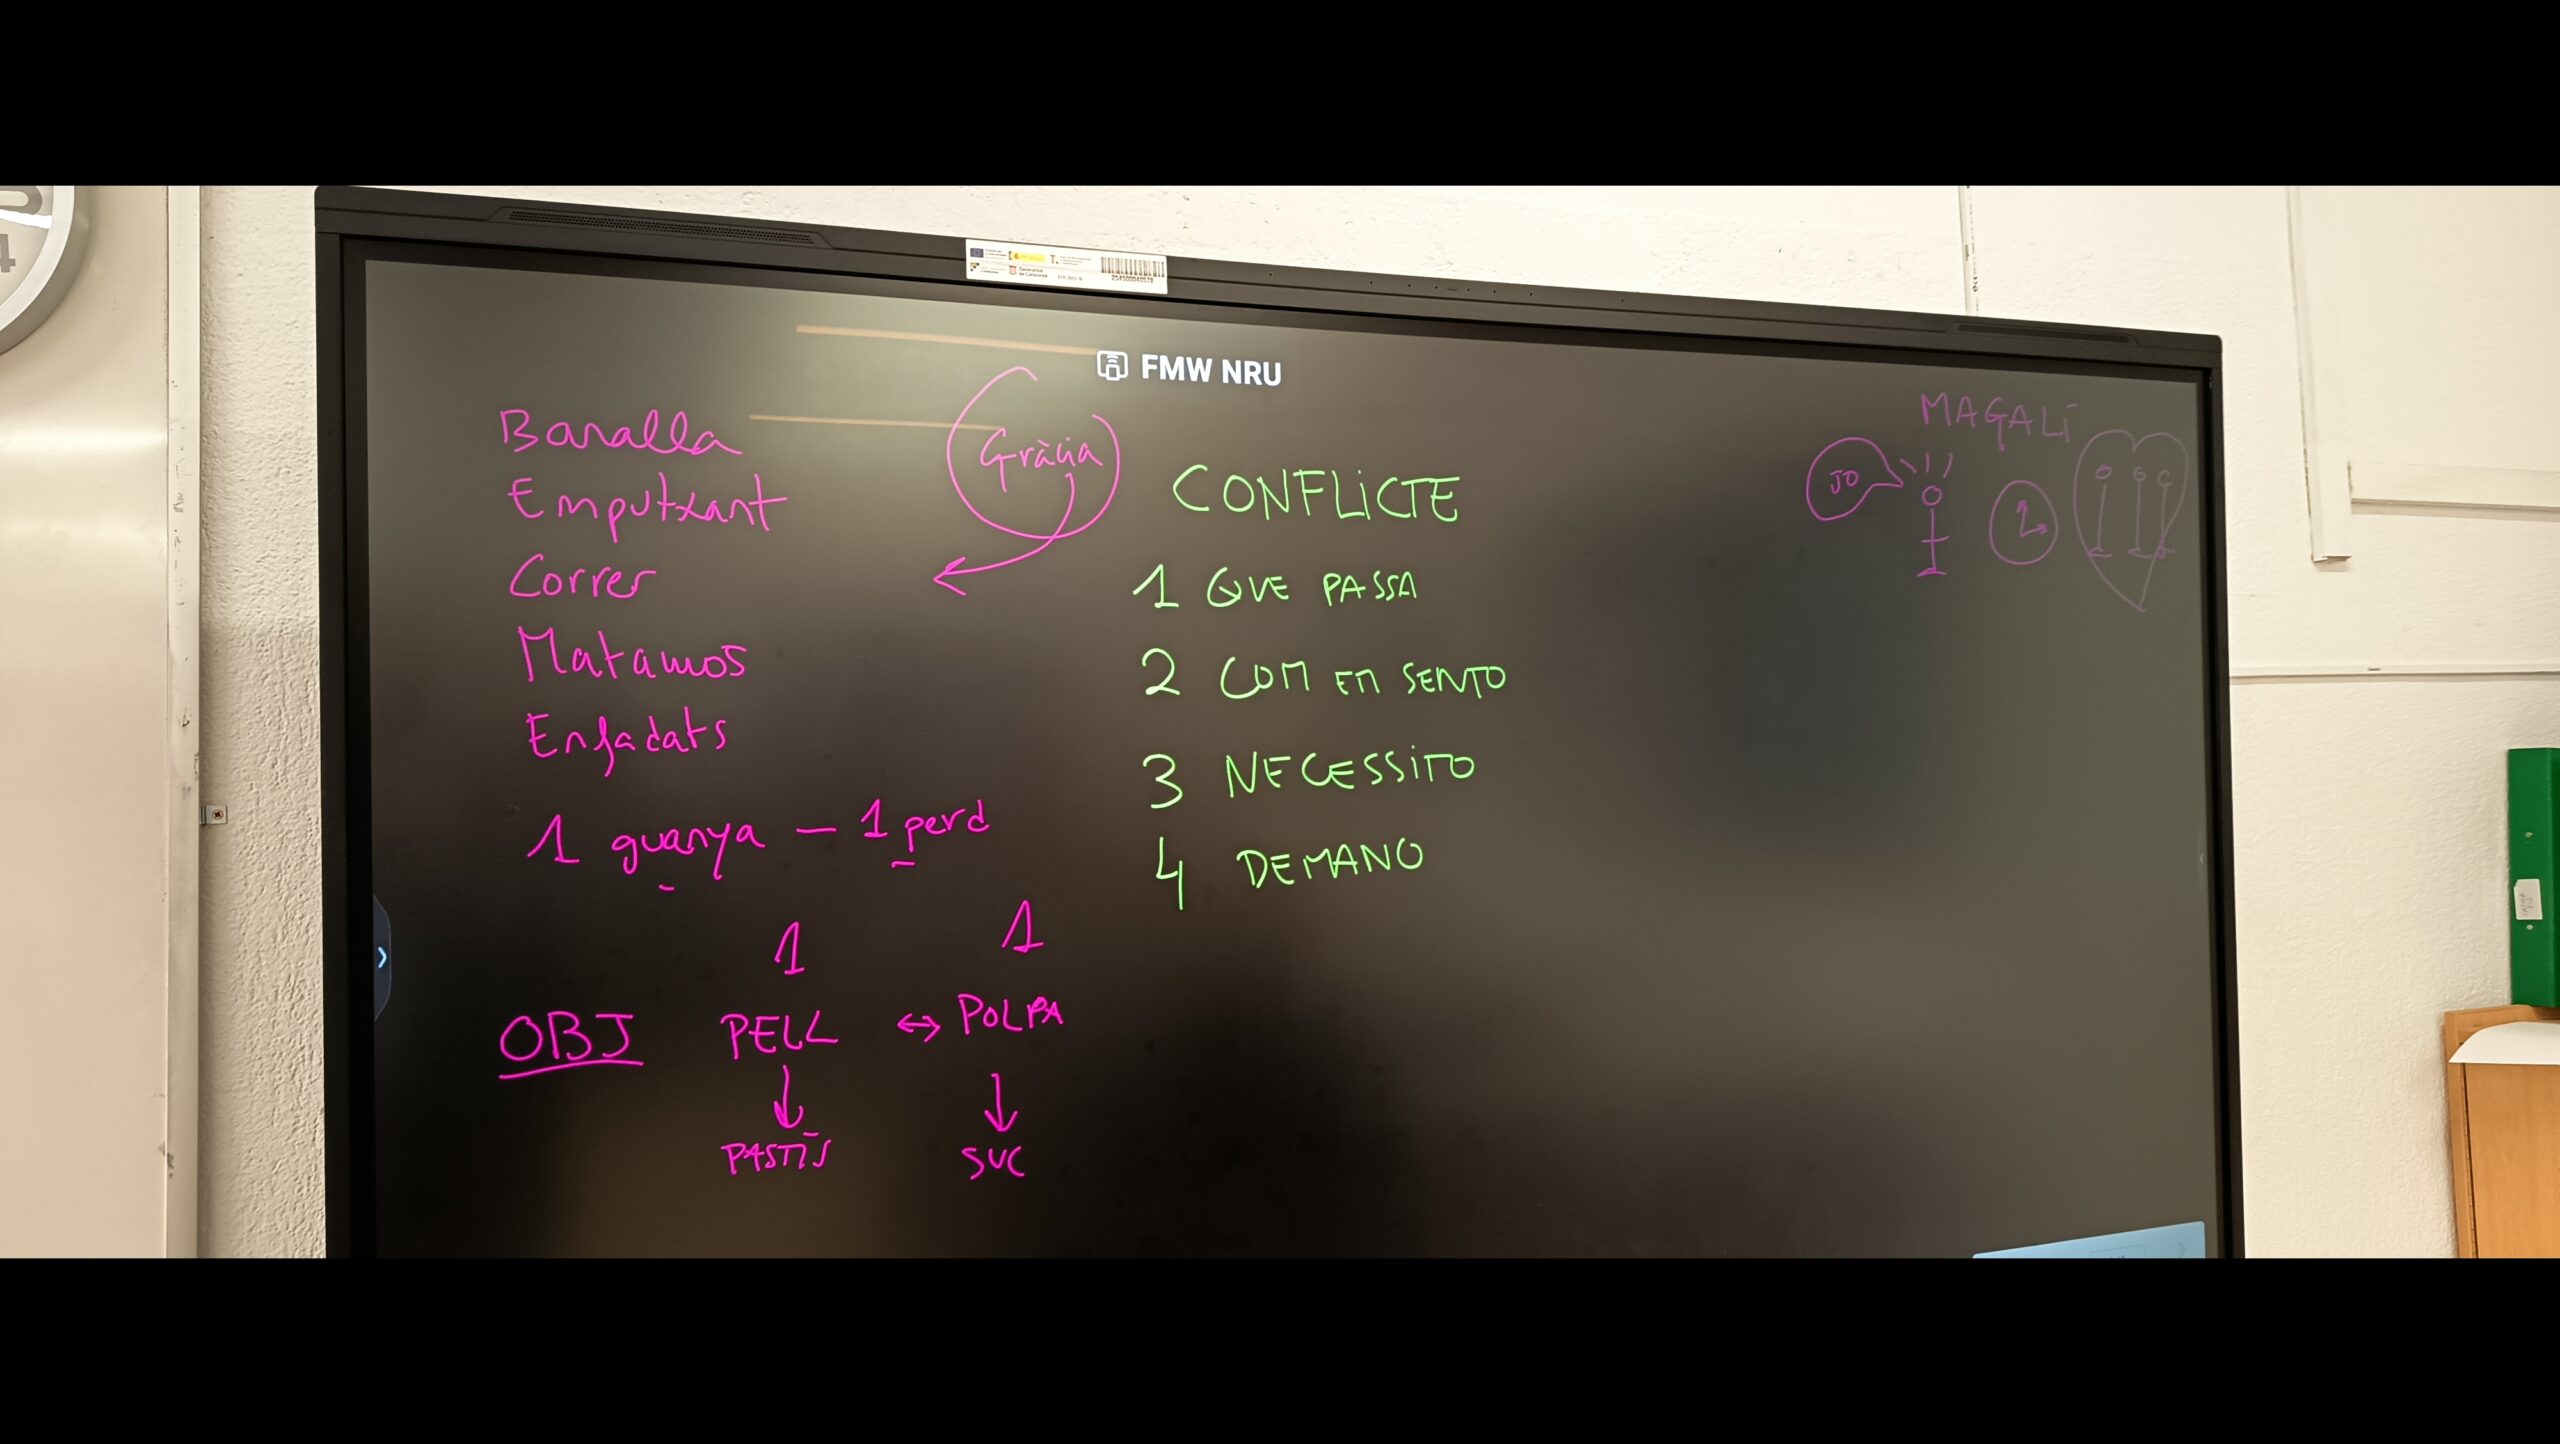 FMW NRU
Baralla
Emputxant
Correr
Matamos
Enfadats
1 guanya — 1 perd
1 1
OBJ PELL ↔ POLPA
PASTÍS SUC
Gràcia
CONFLICTE
1 QUE PASSA
2 COM EM SENTO
3 NECESSITO
4 DEMANO
MAGALÍ
JO
4
Generalitat de Catalunya